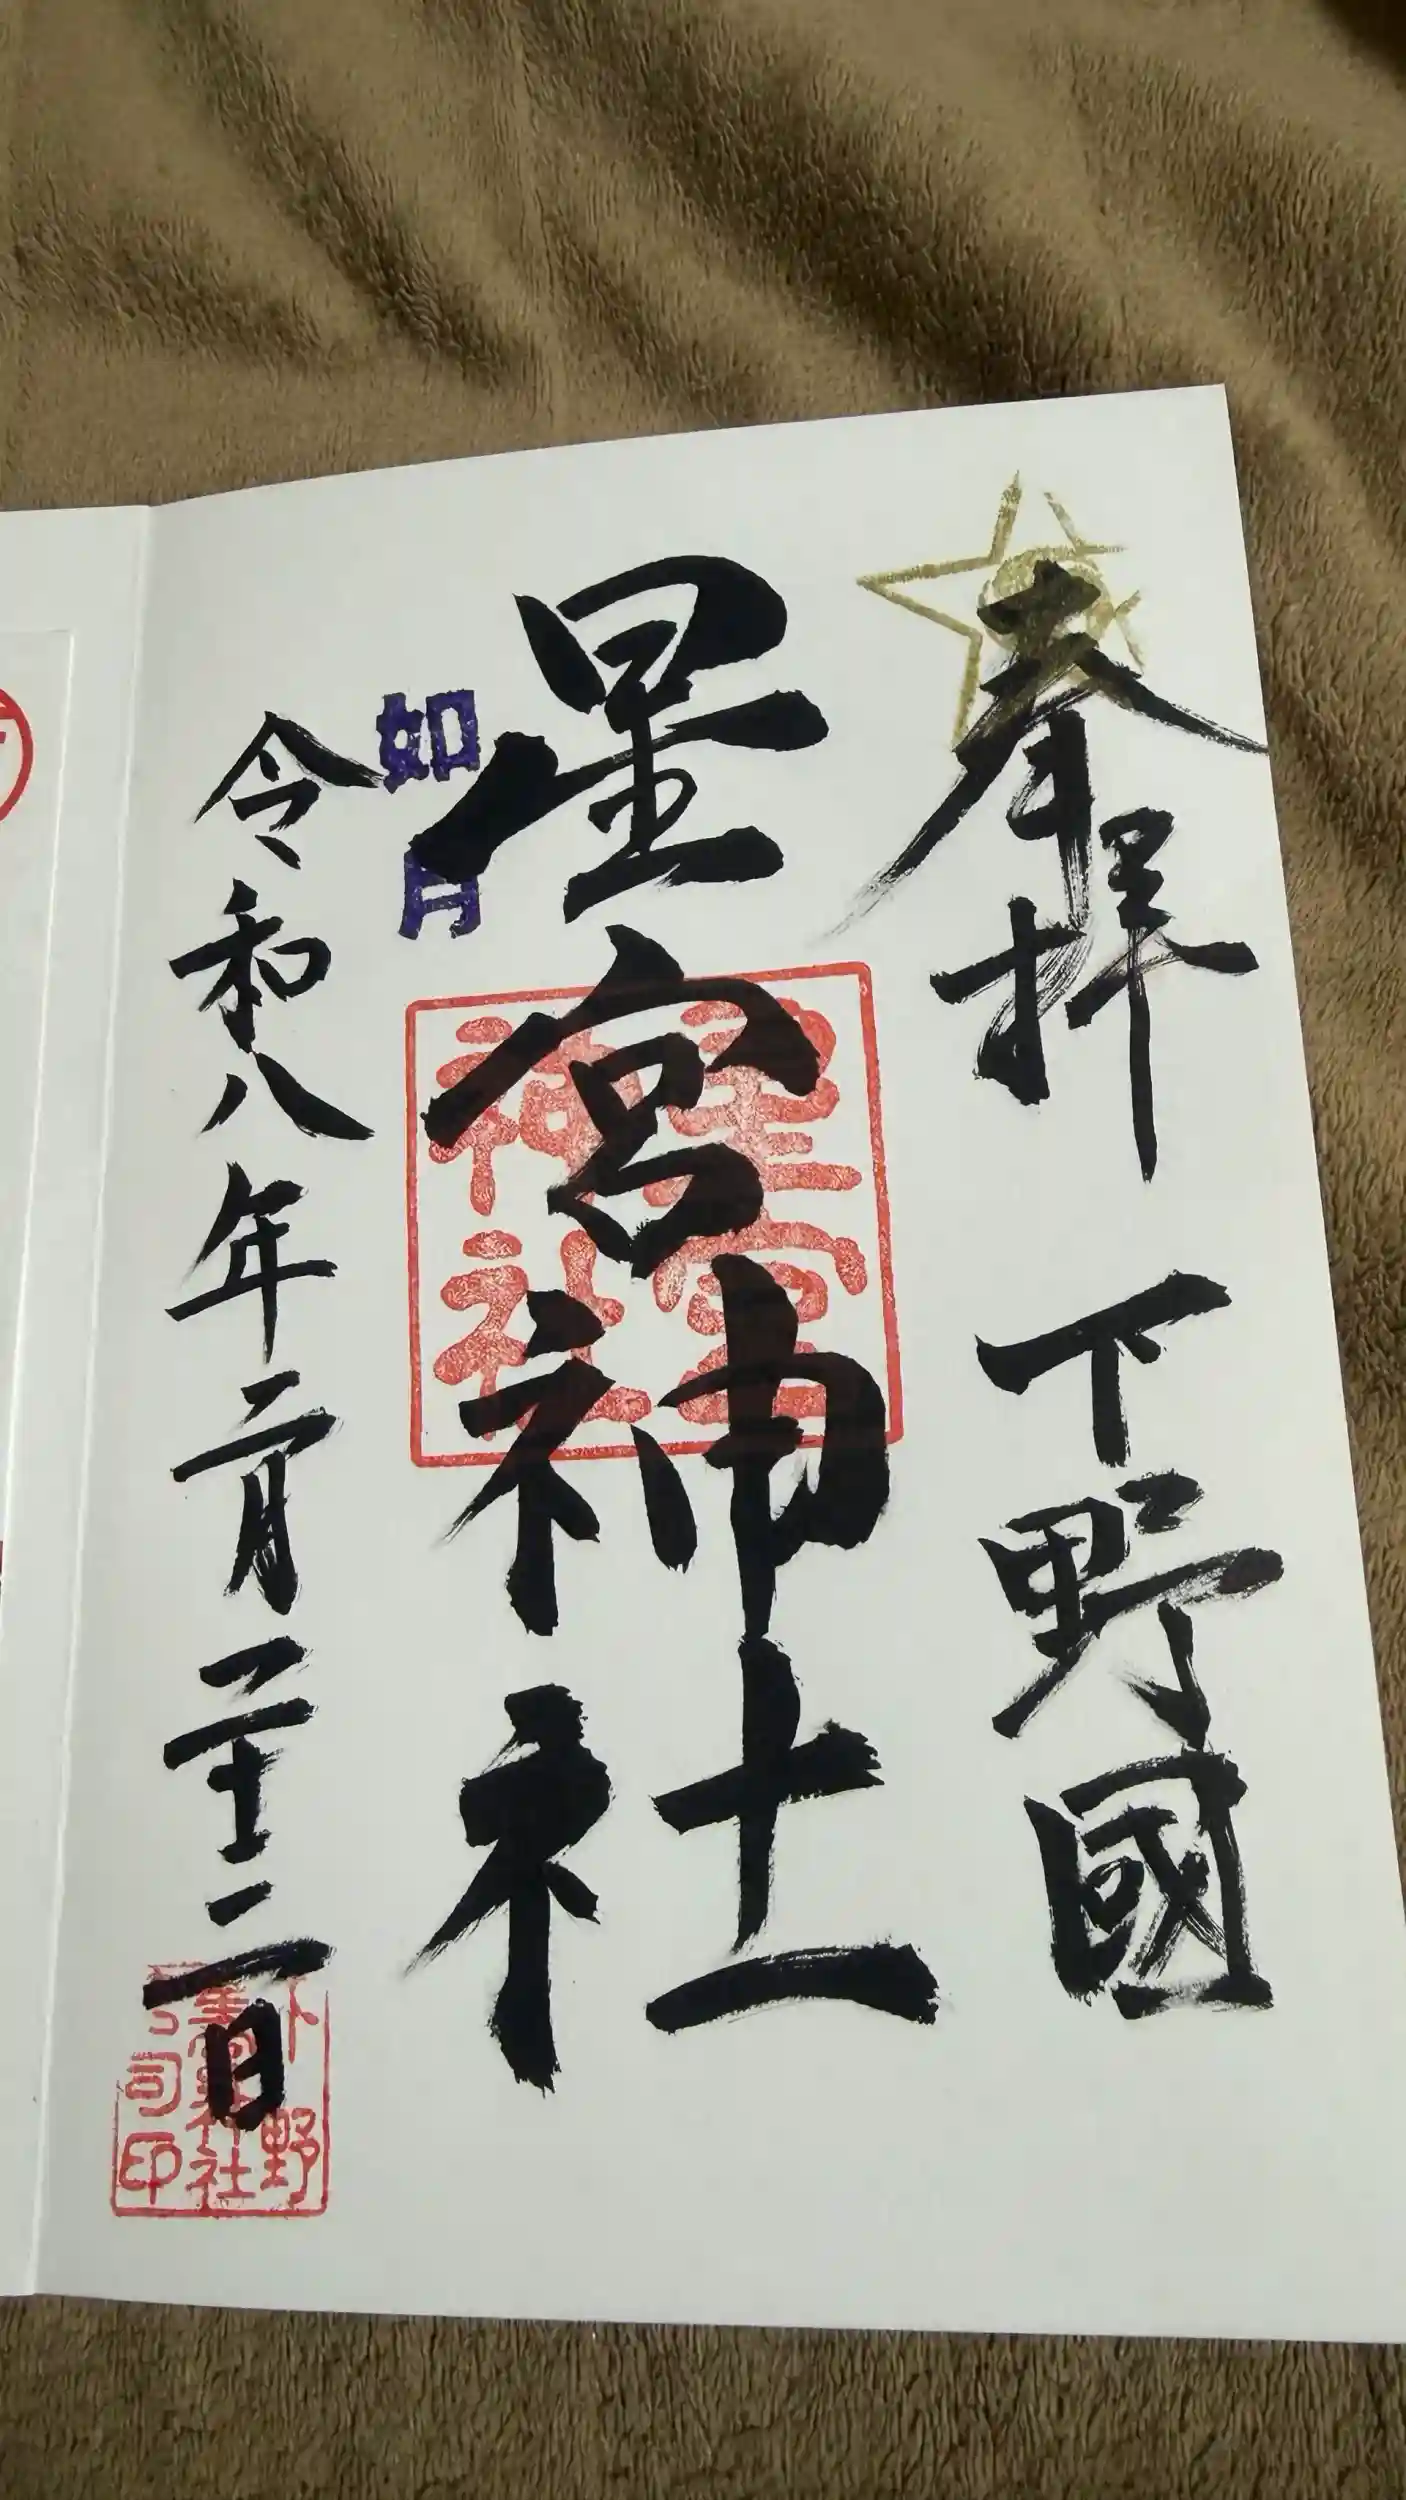 奉拝 下野國
星宮神社
如月
令和八年二月二十二日
星宮
神社
下野
星宮神社
宮司印